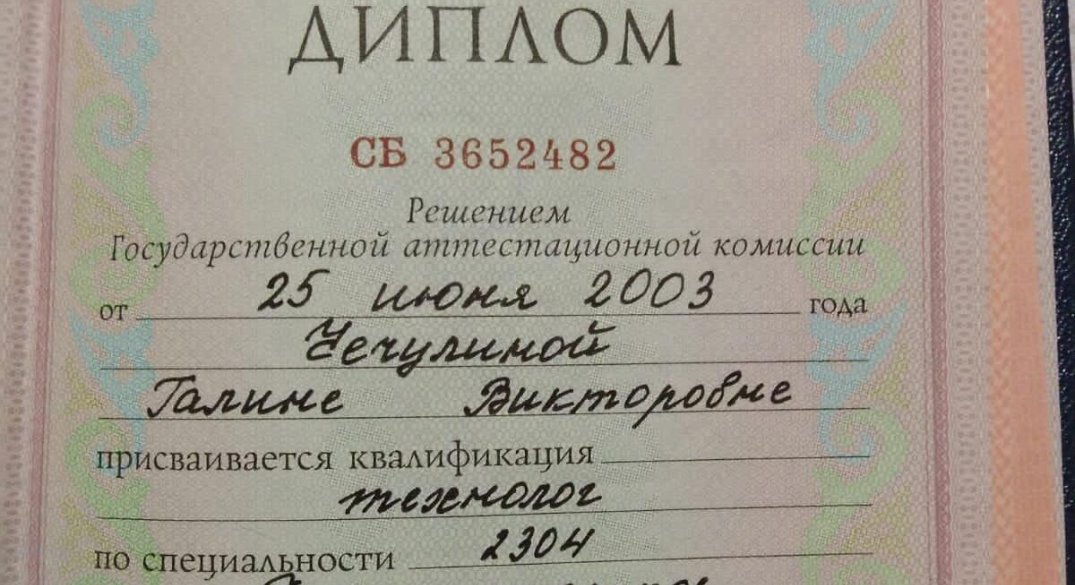 ДИПЛОМ
СБ 3652482
Решением
Государственной аттестационной комиссии
от 25 июня 2003 года
Чечулиной
Галине Викторовне
присваивается квалификация
технолог
по специальности 2304